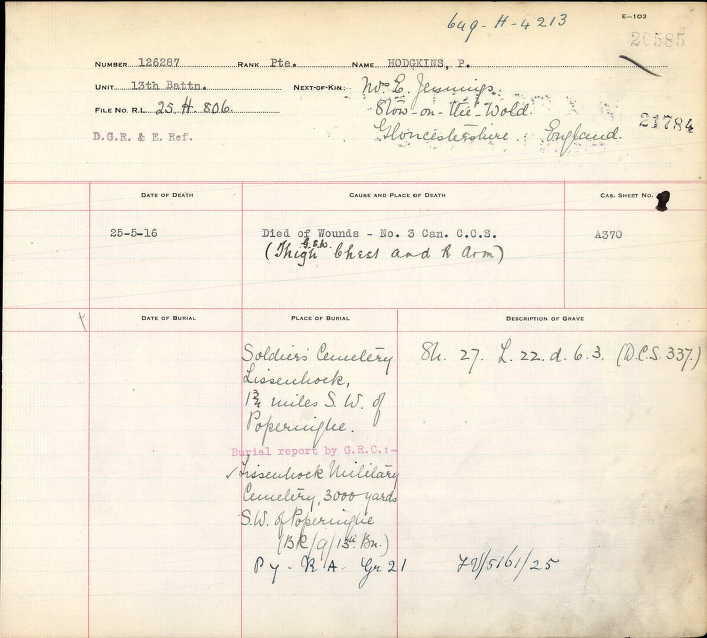 649-H-4213
E-103
20585
NUMBER 126287 RANK Pte. NAME HODGKINS, P.
UNIT 13th Battn. NEXT-OF-KIN: Mr E. Jennings
FILE NO. R.L. 25.H.806. Stow-on-the-Wold.
21784
D.G.R. & E. Ref. Gloucestershire. England.
DATE OF DEATH CAUSE AND PLACE OF DEATH CAS. SHEET NO.
25-5-16 Died of Wounds - No. 3 Can. C.C.S. A370
G.S.W.
(Thigh Chest and R Arm)
DATE OF BURIAL PLACE OF BURIAL DESCRIPTION OF GRAVE
Soldiers' Cemetery Sh. 27. L. 22. d. 6. 3. (D.C.S. 337.)
Lissenhock,
1¾ miles S.W. of
Poperinghe.
Burial report by G.R.C.:-
✓Lissenhock Military
Cemetery, 3000 yards
S.W. of Poperinghe
(BR/9/13th Bn.)
P Y - R A - Gr 21